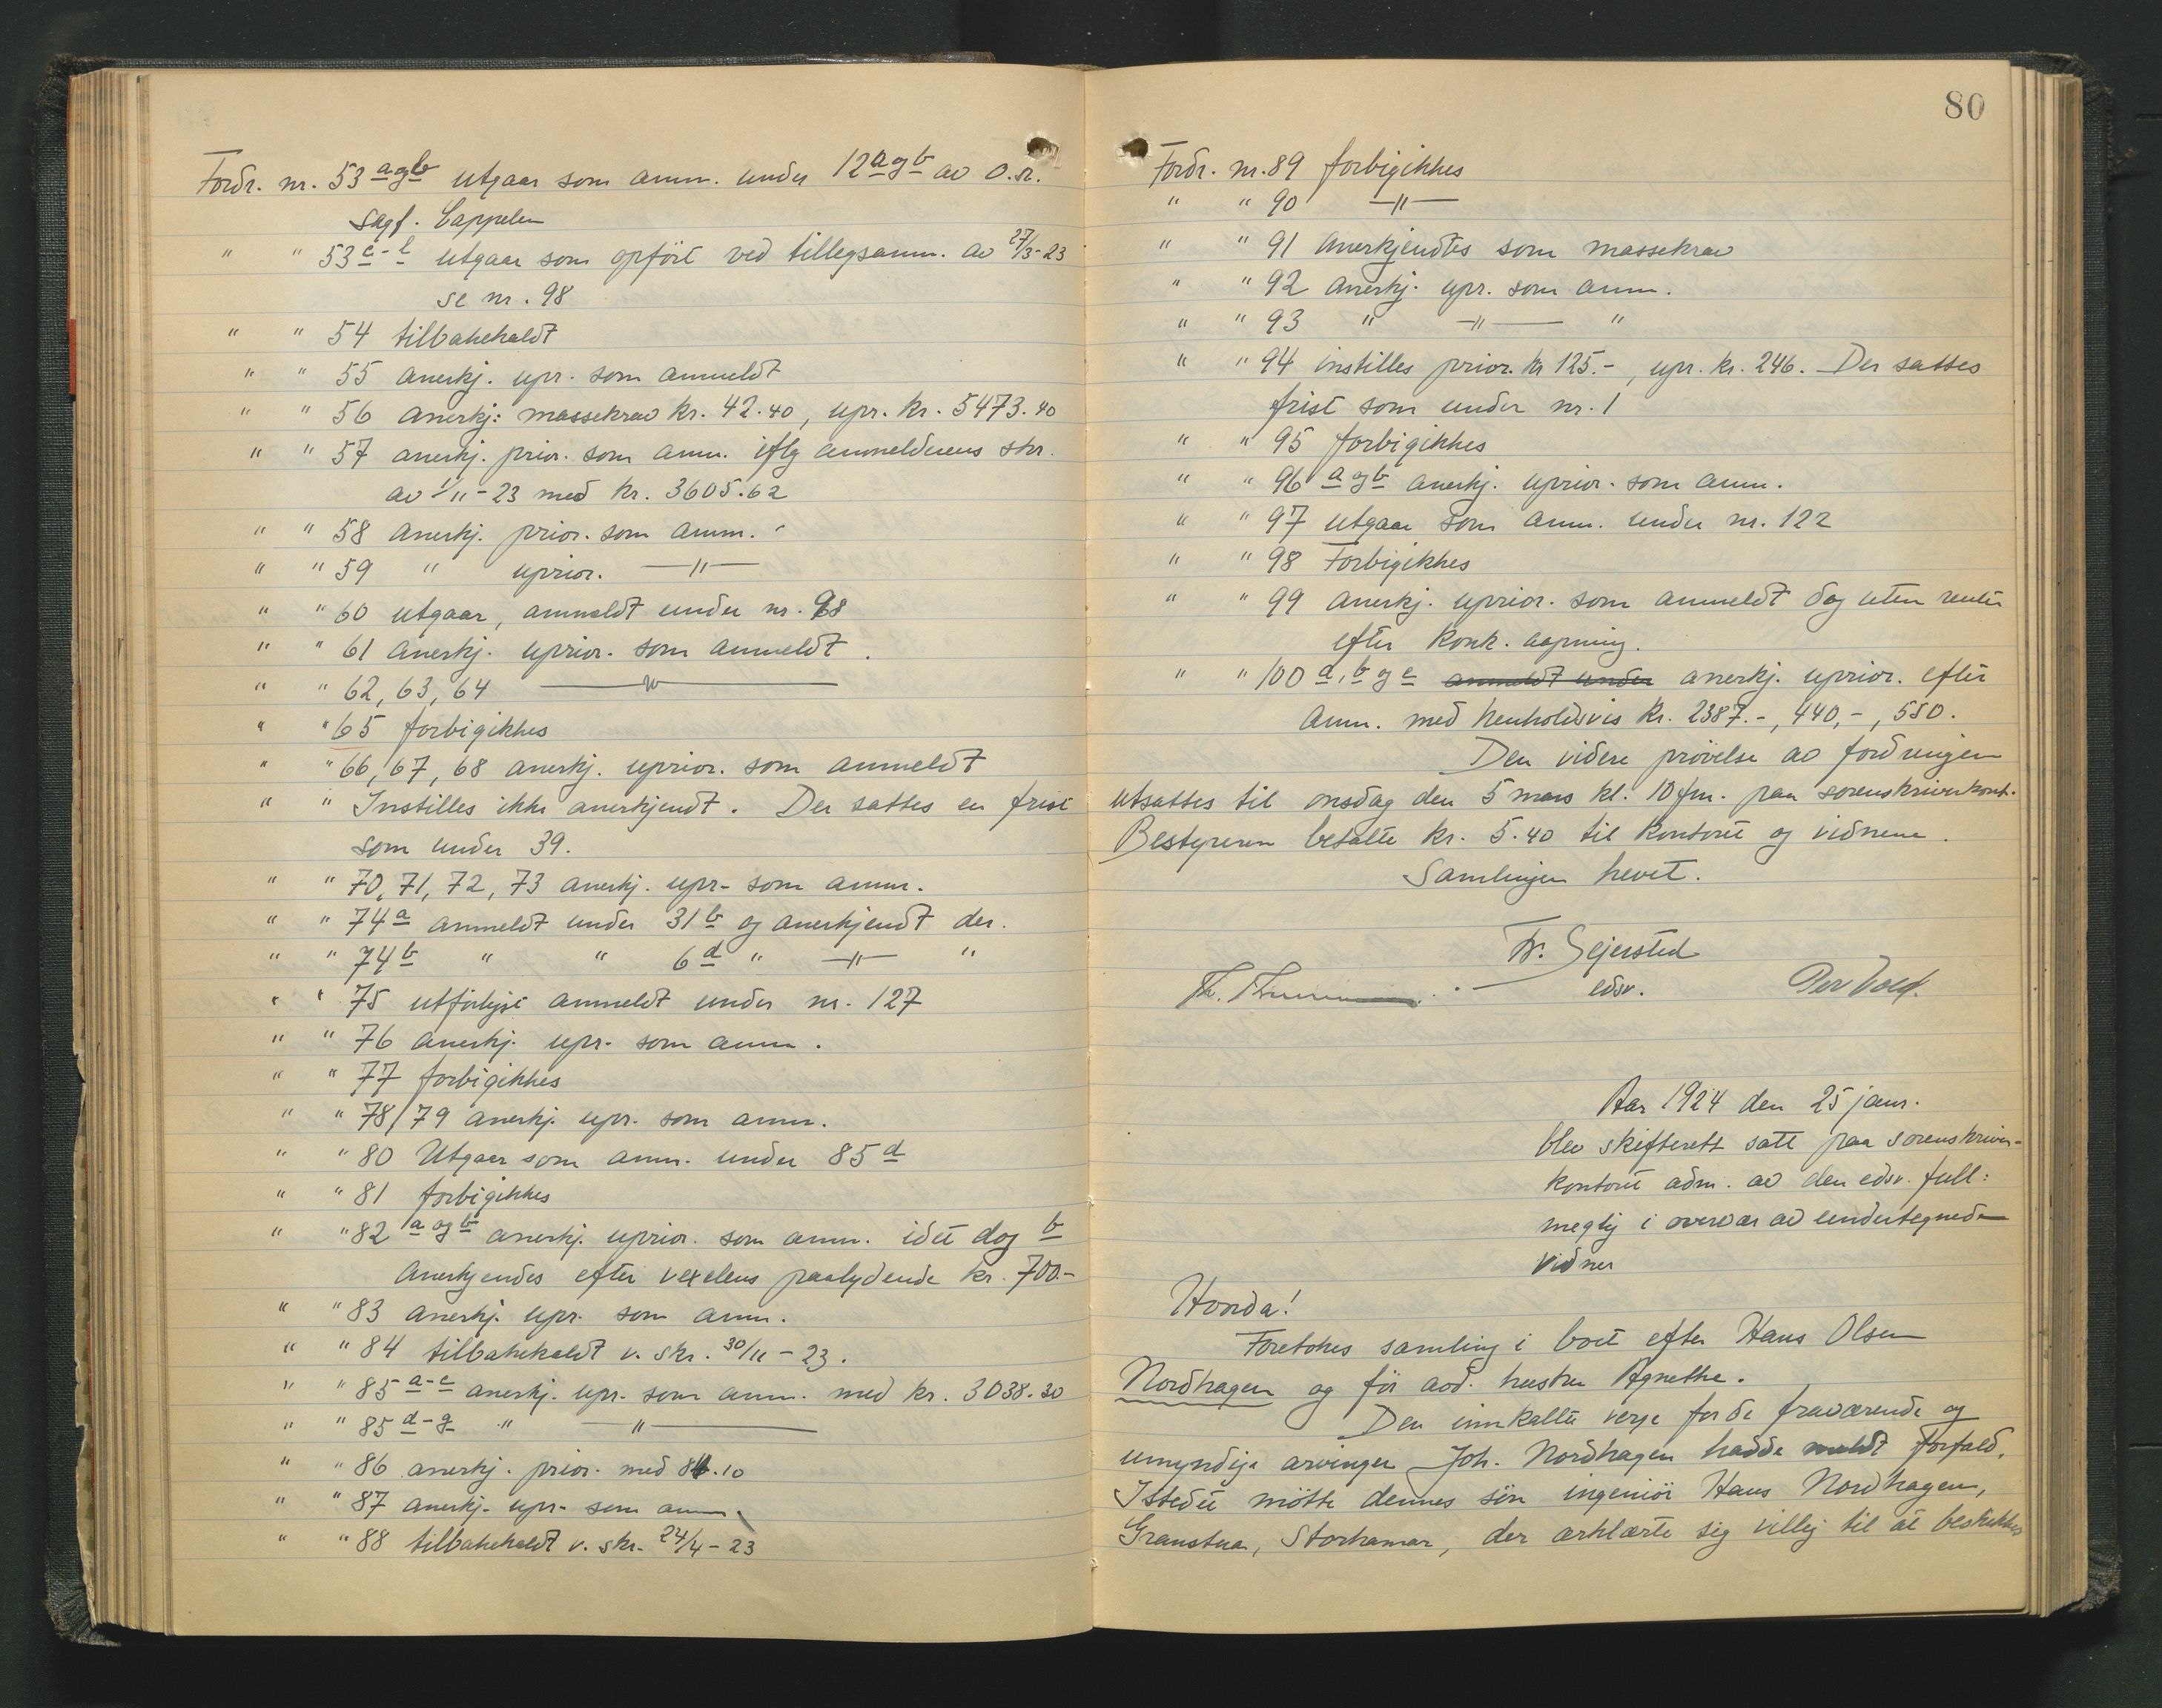 Fordr. nr. 53 a og b utgaar som anm. under 12 a og b av O.r.
sagf. Cappelen
" " 53 c-l utgaar som opført ved tillegsanm. av 27/3-23
se nr. 98
" " 54 tilbakekaldt
" " 55 anerkj. upr. som anmeldt
" " 56 anerkj: massekrav kr. 42.40, upr. kr. 5473.40
" " 57 anerkj. prior. som anm. iflg anmelderens skr.
av 1/11-23 med kr. 3605.62
" " 58 anerkj. prior. som anm.
" " 59 " uprior. —"—
" " 60 utgaar, anmeldt under nr. 98
" " 61 anerkj. uprior. som anmeldt.
" " 62, 63, 64 —"—
" " 65 forbigikkes
" " 66, 67, 68 anerkj. uprior. som anmeldt
" " Instilles ikke anerkjendt. Der sattes en frist
som under 39.
" " 70, 71, 72, 73 anerkj. upr. som anm.
" " 74 a anmeldt under 31 b og anerkjendt der.
" " 74 b " " 6 d " —"— "
" " 75 anmeldt under nr. 127
" " 76 anerkj. upr. som anm.
" " 77 forbigikkes
" " 78/79 anerkj. upr. som anm.
" " 80 Utgaar som anm. under 85 d
" " 81 forbigikkes
" " 82 a og b anerkj. uprior. som anm. idet dog b
anerkjendes efter vexelens paalydende kr. 700.-
" " 83 anerkj. upr. som anm.
" " 84 tilbakekaldt v. skr. 30/11-23.
" " 85 a-c anerkj. upr. som anm. med kr. 3038.30
" " 85 d-g " —"—
" " 86 anerkj. prior. med 84.10
" " 87 anerkj. upr. som anm.
" " 88 tilbakekaldt v. skr. 24/4-23
80
Fordr. nr. 89 forbigikkes
" " 90 —"—
" " 91 anerkjendtes som massekrav
" " 92 anerkj. upr. som anm.
" " 93 " —"— "
" " 94 instilles prior. kr 125.-, upr. kr. 246. Der sattes
frist som under nr. 1
" " 95 forbigikkes
" " 96 a og b anerkj. uprior. som anm.
" " 97 utgaar som anm. under nr. 122
" " 98 Forbigikkes
" " 99 anerkj. uprior. som anmeldt dog uten renter
efter konk. aapning.
" " 100 a, b og c anmeldt under anerkj. uprior. efter
anm. med henholdsvis kr. 2387.-, 440,-, 550.
Den videre prøvelse av fordringen
utsattes til onsdag den 5 mars kl. 10 fm. paa sorenskriverkont.
Bestyreren betalte kr. 5.40 til kontoret og vidnene.
Samlingen hevet.
Fr. Sejersted
edsv.
Aar 1924 den 25 janr.
blev skifterett satt paa sorenskriver-
kontoret adm. av den edsv. full:
megtig i overvær av undertegnede
vidner
Hvorda!
Foretokes samling i boet efter Hans Olsen
Nordhagen og før avd. hustru Agnethe.
Den innkalte verge for de fraværende og
umyndige arvinger Joh. Nordhagen hadde meldt forfald.
Istedet møtte dennes søn ingeniør Hans Nordhagen,
Granstua, Storhamar, der erklærte sig villig til at beskikkes